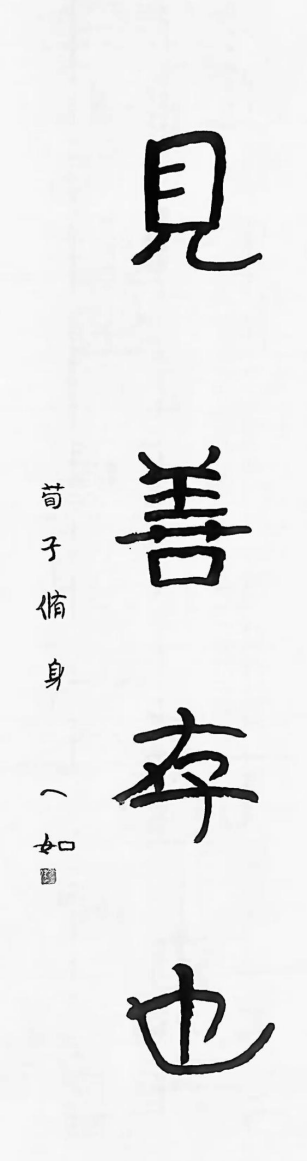 見善存也
荀子脩身 一如